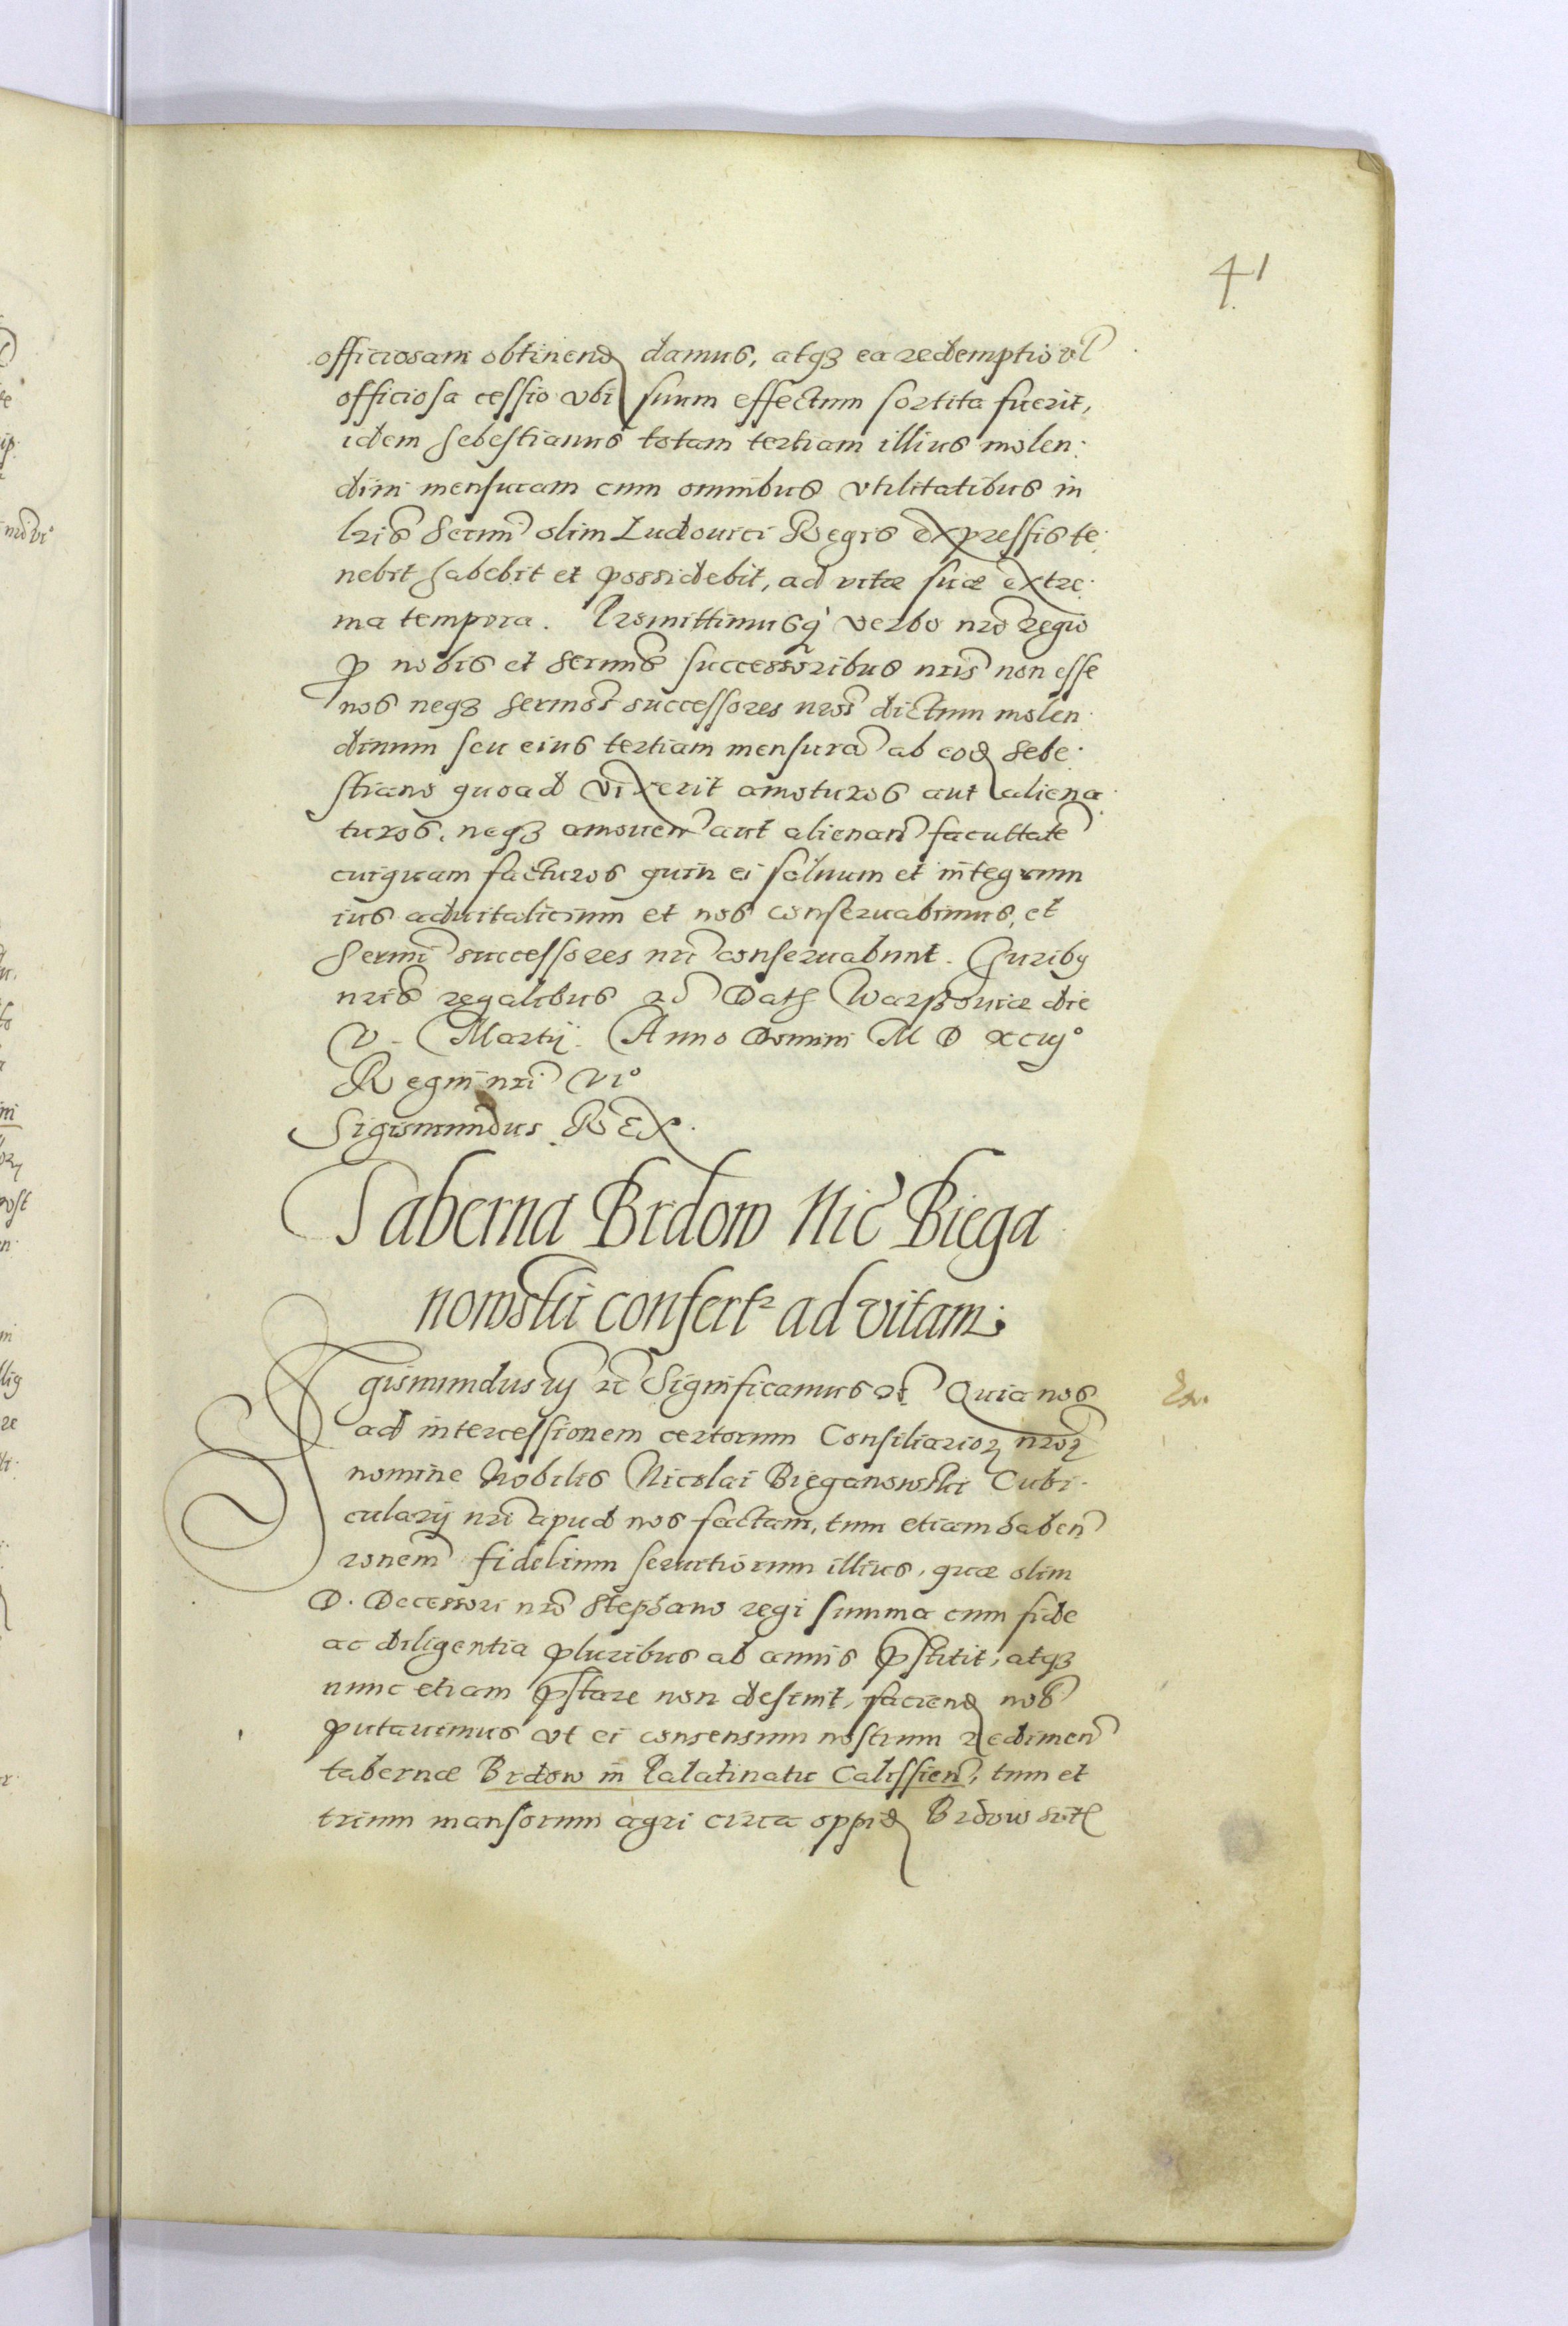 41
officiosam obtinend damus, atq3 ea redemptio vl
officiosa cessio vbi suum effectum sortita fuerit,
idem Sebestianus totam tertiam illius molen:
dini mensuram cum omnibus vtilitatibus in
lris Sermi olim Ludouici Regis expressis te:
nebit habebit et possidebit, ad vitæ suæ extre:
ma tempora. Promittimusq verbo nro regio
p nobis et sermis successoribus nris non esse
nos neq3 sermos successores nros dictum molen:
dinum seu eius tertiam mensura ab eod Sebe:
stiano quoad vixerit amoturos aut aliena:
turos, neq3 amouen aut alienan facultate
cuiquam facturos quin ei saluum et integrum
ius aduitalicium et nos conseruabimus, et
Sermi successores nri conseruabunt. Iuribq
nris regalibus rc Dat Warssouiæ die
V. Martij. Anno Domini M D xciij°
Regni nri vi°
Sigismundus REX.
Taberna Brdow Nic Biega
nowskii confert ad vitam.
Sigismundus iij rc Significamus rc Quia nos
ad intercessionem certorum Consiliarior nror
nomine Nobilis Nicolai Bieganowski Cubi:
cularij nri apud nos factam, tum etiam haben
ronem fidelium seruitiorum illius, quæ olim
D. Decessori nro Stephano regi summa cum fide
ac diligentia pluribus ab annis pstitit, atq3
nunc etiam pstare non desinit, faciend nob
putauimus vt ei consensum nostrum redimen
tabernæ Brdow in Palatinatu Calissien, tum et
trium mansorum agri circa oppid Brdow